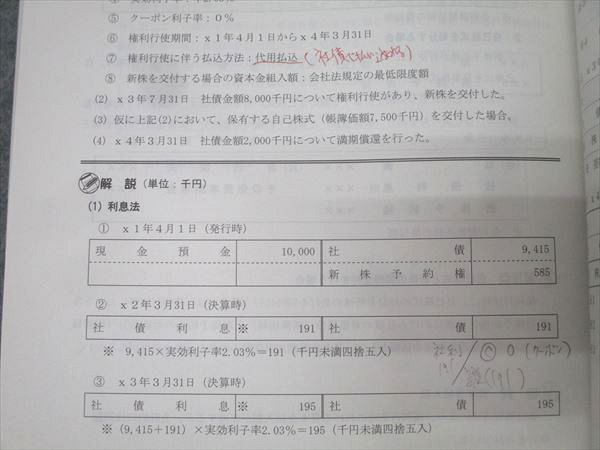 ⑤ クーポン利子率：０％
⑥ 権利行使期間：ｘ１年４月１日からｘ４年３月31日
⑦ 権利行使に伴う払込方法：代用払込（社債で払い込める）
⑧ 新株を交付する場合の資本金組入額：会社法規定の最低限度額
(2) ｘ３年７月31日 社債金額8,000千円について権利行使があり、新株を交付した。
(3) 仮に上記(2)において、保有する自己株式（帳簿価額7,500千円）を交付した場合。
(4) ｘ４年３月31日 社債金額2,000千円について満期償還を行った。
解 説（単位：千円）
(1) 利息法
① ｘ１年４月１日（発行時）
現 金 預 金 10,000 社 債 9,415
新 株 予 約 権 585
② ｘ２年３月31日（決算時）
社 債 利 息 ※ 191 社 債 191
※ 9,415×実効利子率2.03％＝191（千円未満四捨五入）
社利 191 / ◯ 0（クーポン）
(191)
③ ｘ３年３月31日（決算時）
社 債 利 息 ※ 195 社 債 195
※（9,415＋191）×実効利子率2.03％＝195（千円未満四捨五入）